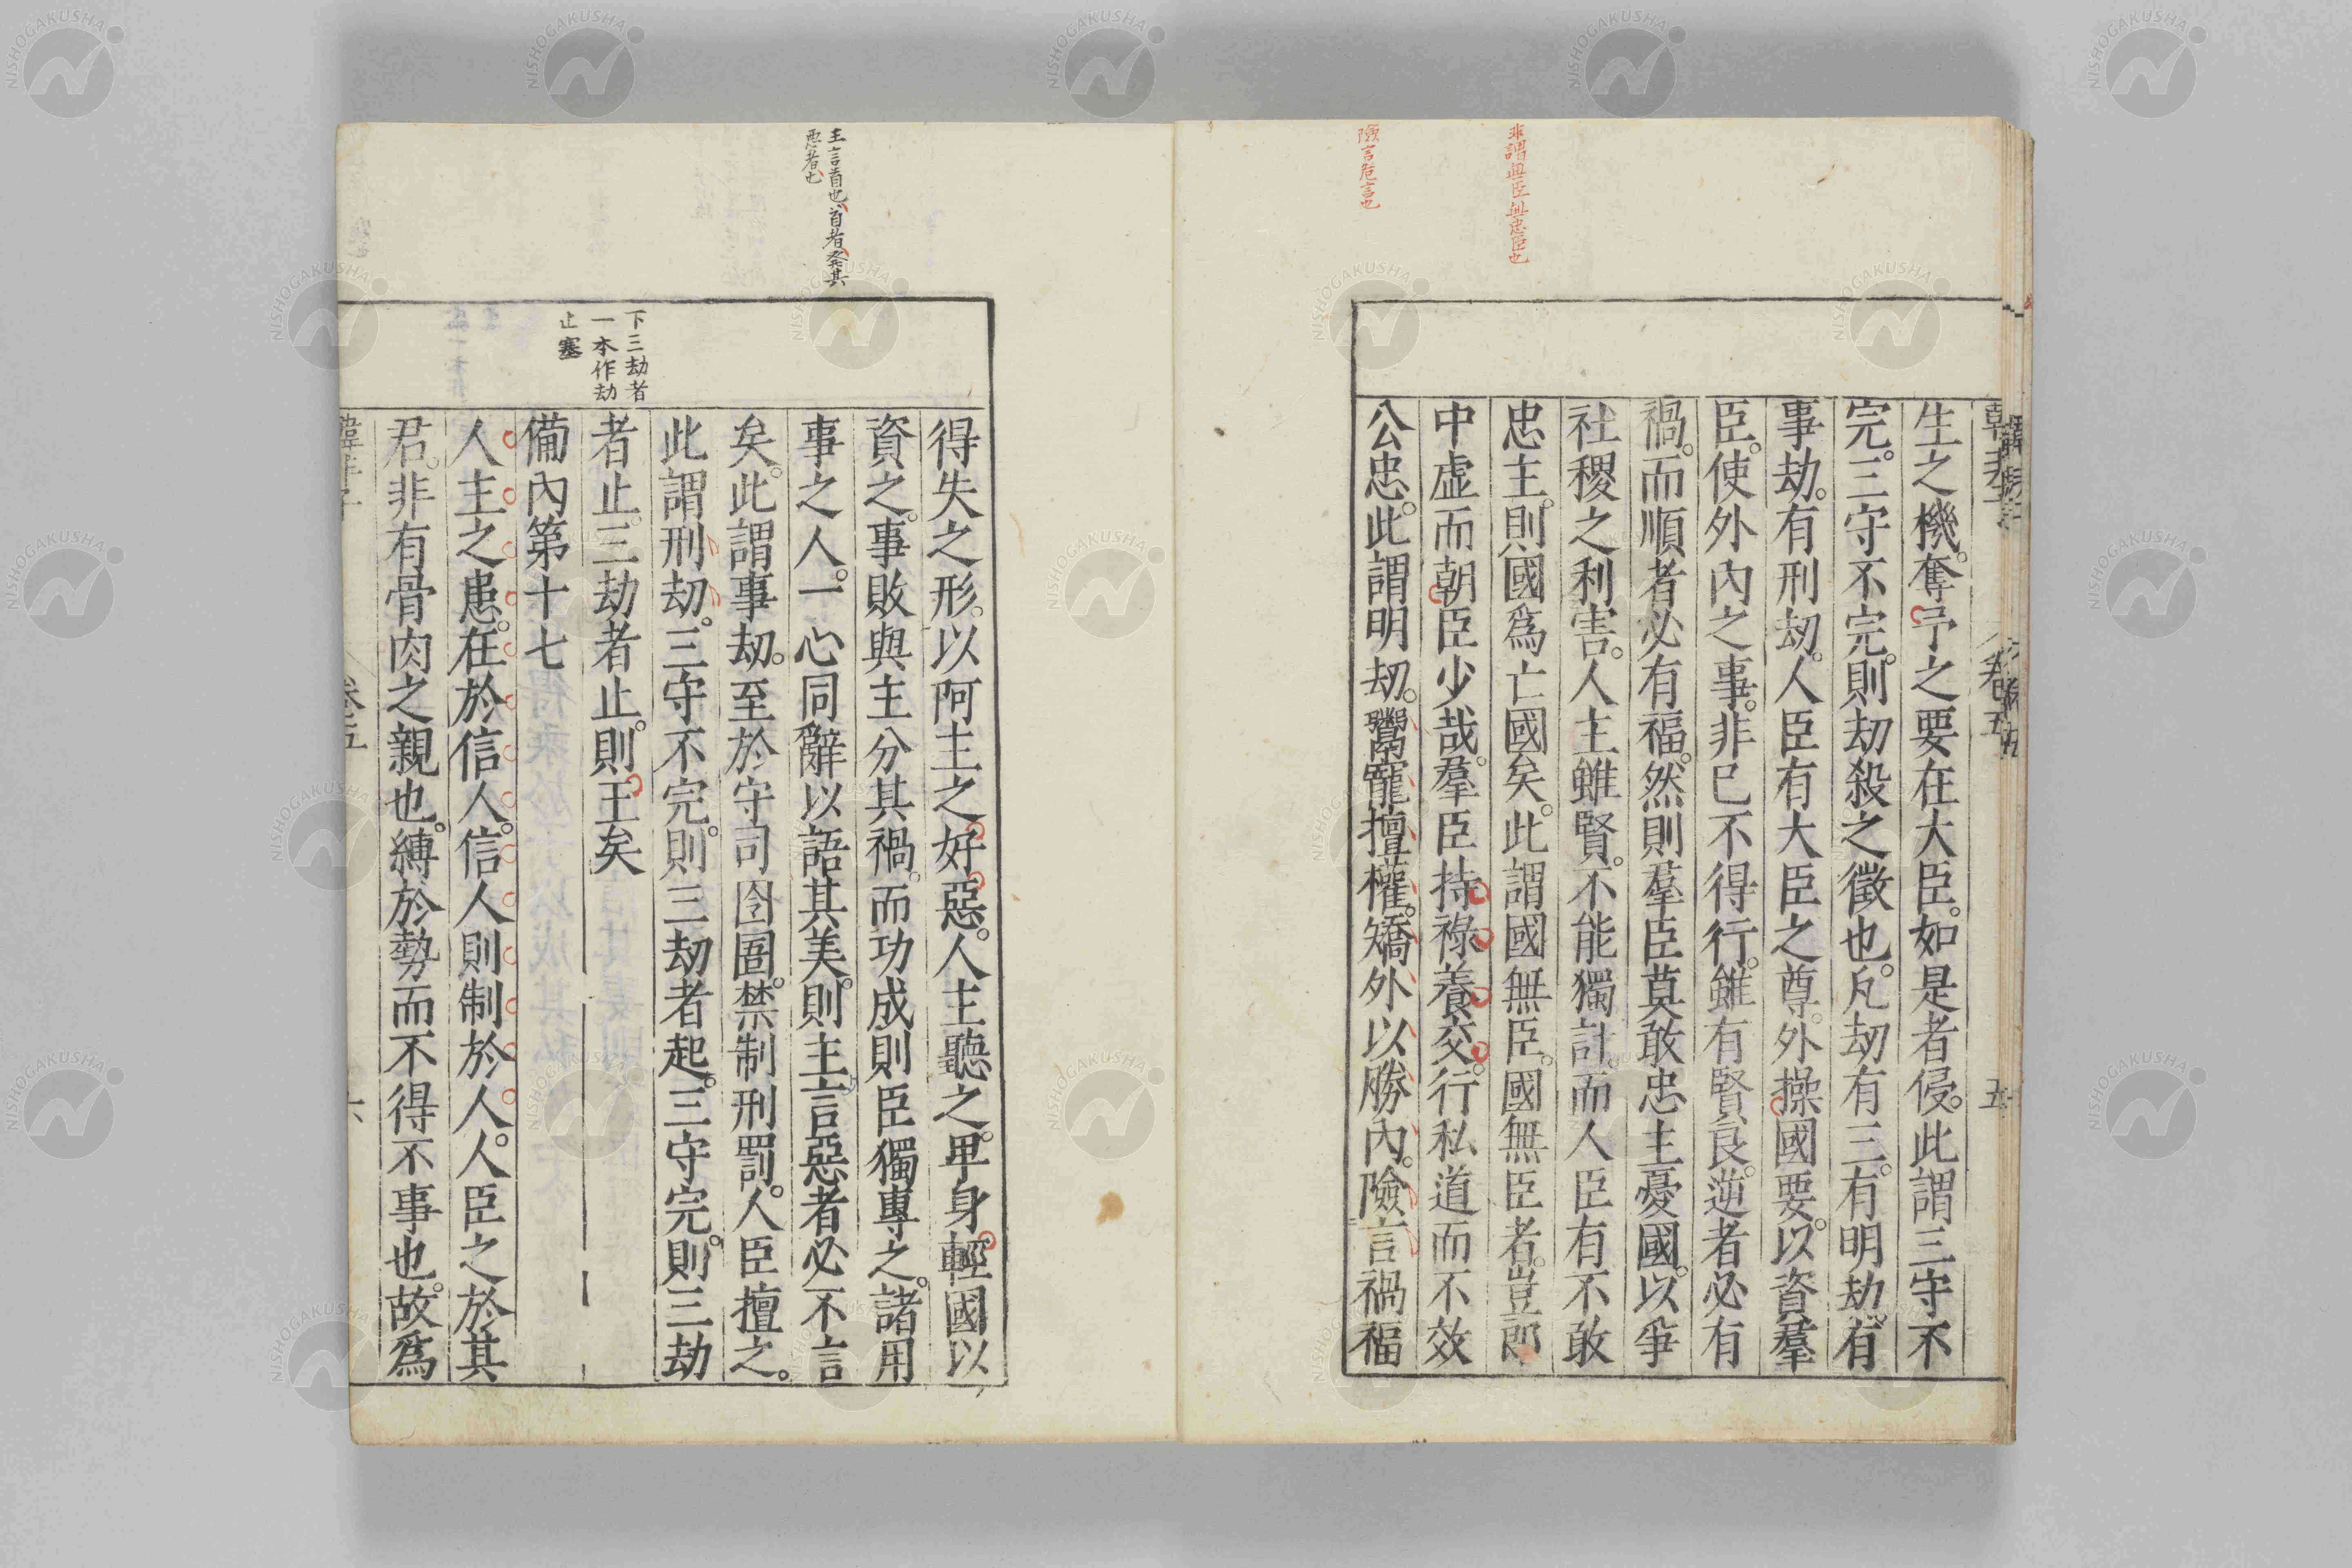 非謂無臣無忠臣也
險言危言也
生之機。奪予之要在大臣。如是者侵。此謂三守不
完。三守不完。則劫殺之徵也。凡劫有三。有明劫。有
事劫。有刑劫。人臣有大臣之尊。外操國要。以資羣
臣。使外內之事。非己不得行。雖有賢良。逆者必有
禍。而順者必有福。然則羣臣莫敢忠主憂國。以爭
社稷之利害。人主雖賢。不能獨計。而人臣有不敢
忠主。則國爲亡國矣。此謂國無臣。國無臣者。豈郎
中虛而朝臣少哉。羣臣持祿養交。行私道而不效
公忠。此謂明劫。鬻寵擅權。矯外以勝內。險言禍福
主言首也、首者發其
悪者也
得失之形。以阿主之好惡。人主聽之。卑身輕國以
資之。事敗與主分其禍。而功成則臣獨專之。諸用
事之人。一心同辭以語其美。則主言惡者必不言
矣。此謂事劫。至於守司囹圄。禁制刑罰。人臣擅之。
此謂刑劫。三守不完。則三劫者起。三守完。則三劫
下三劫者
一本作劫
止塞
者止。三劫者止。則王矣
備內第十七
人主之患。在於信人。信人則制於人。人臣之於其
君。非有骨肉之親也。縛於勢而不得不事也。故爲
卷五
六
NISHOGAKUSHA